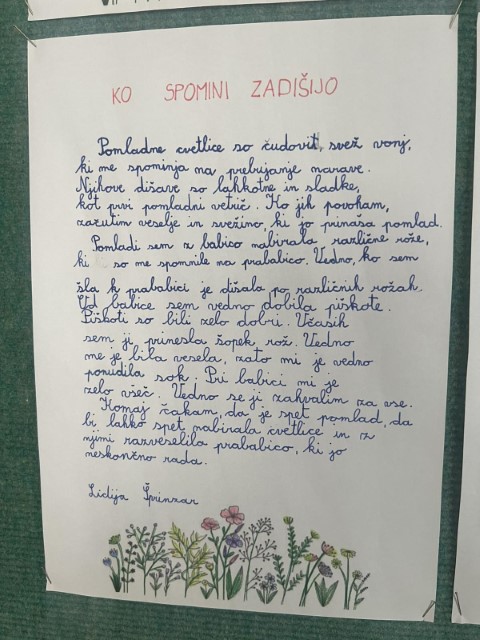 KO SPOMINI ZADIŠIJO
Pomladne cvetlice so čudovit, svež vonj,
ki me spominja na prebujanje narave.
Njihove dišave so lahkotne in sladke,
kot prvi pomladni vetrič. Ko jih povoham,
začutim veselje in svežino, ki jo prinaša pomlad.
Pomladi sem z babico nabirala različne rože,
ki so me spomnile na prababico. Vedno, ko sem
šla k prababici je dišalo po različnih rožah.
Od babice sem vedno dobila piškote.
Piškoti so bili zelo dobri. Včasih
sem ji prinesla šopek rož. Vedno
me je bila vesela, zato mi je vedno
ponudila sok. Pri babici mi je
zelo všeč. Vedno se ji zahvalim za vse.
Komaj čakam, da je spet pomlad, da
bi lahko spet nabirala cvetlice in z
njimi razveselila prababico, ki jo
neskončno rada.
Lidija Šprinzar